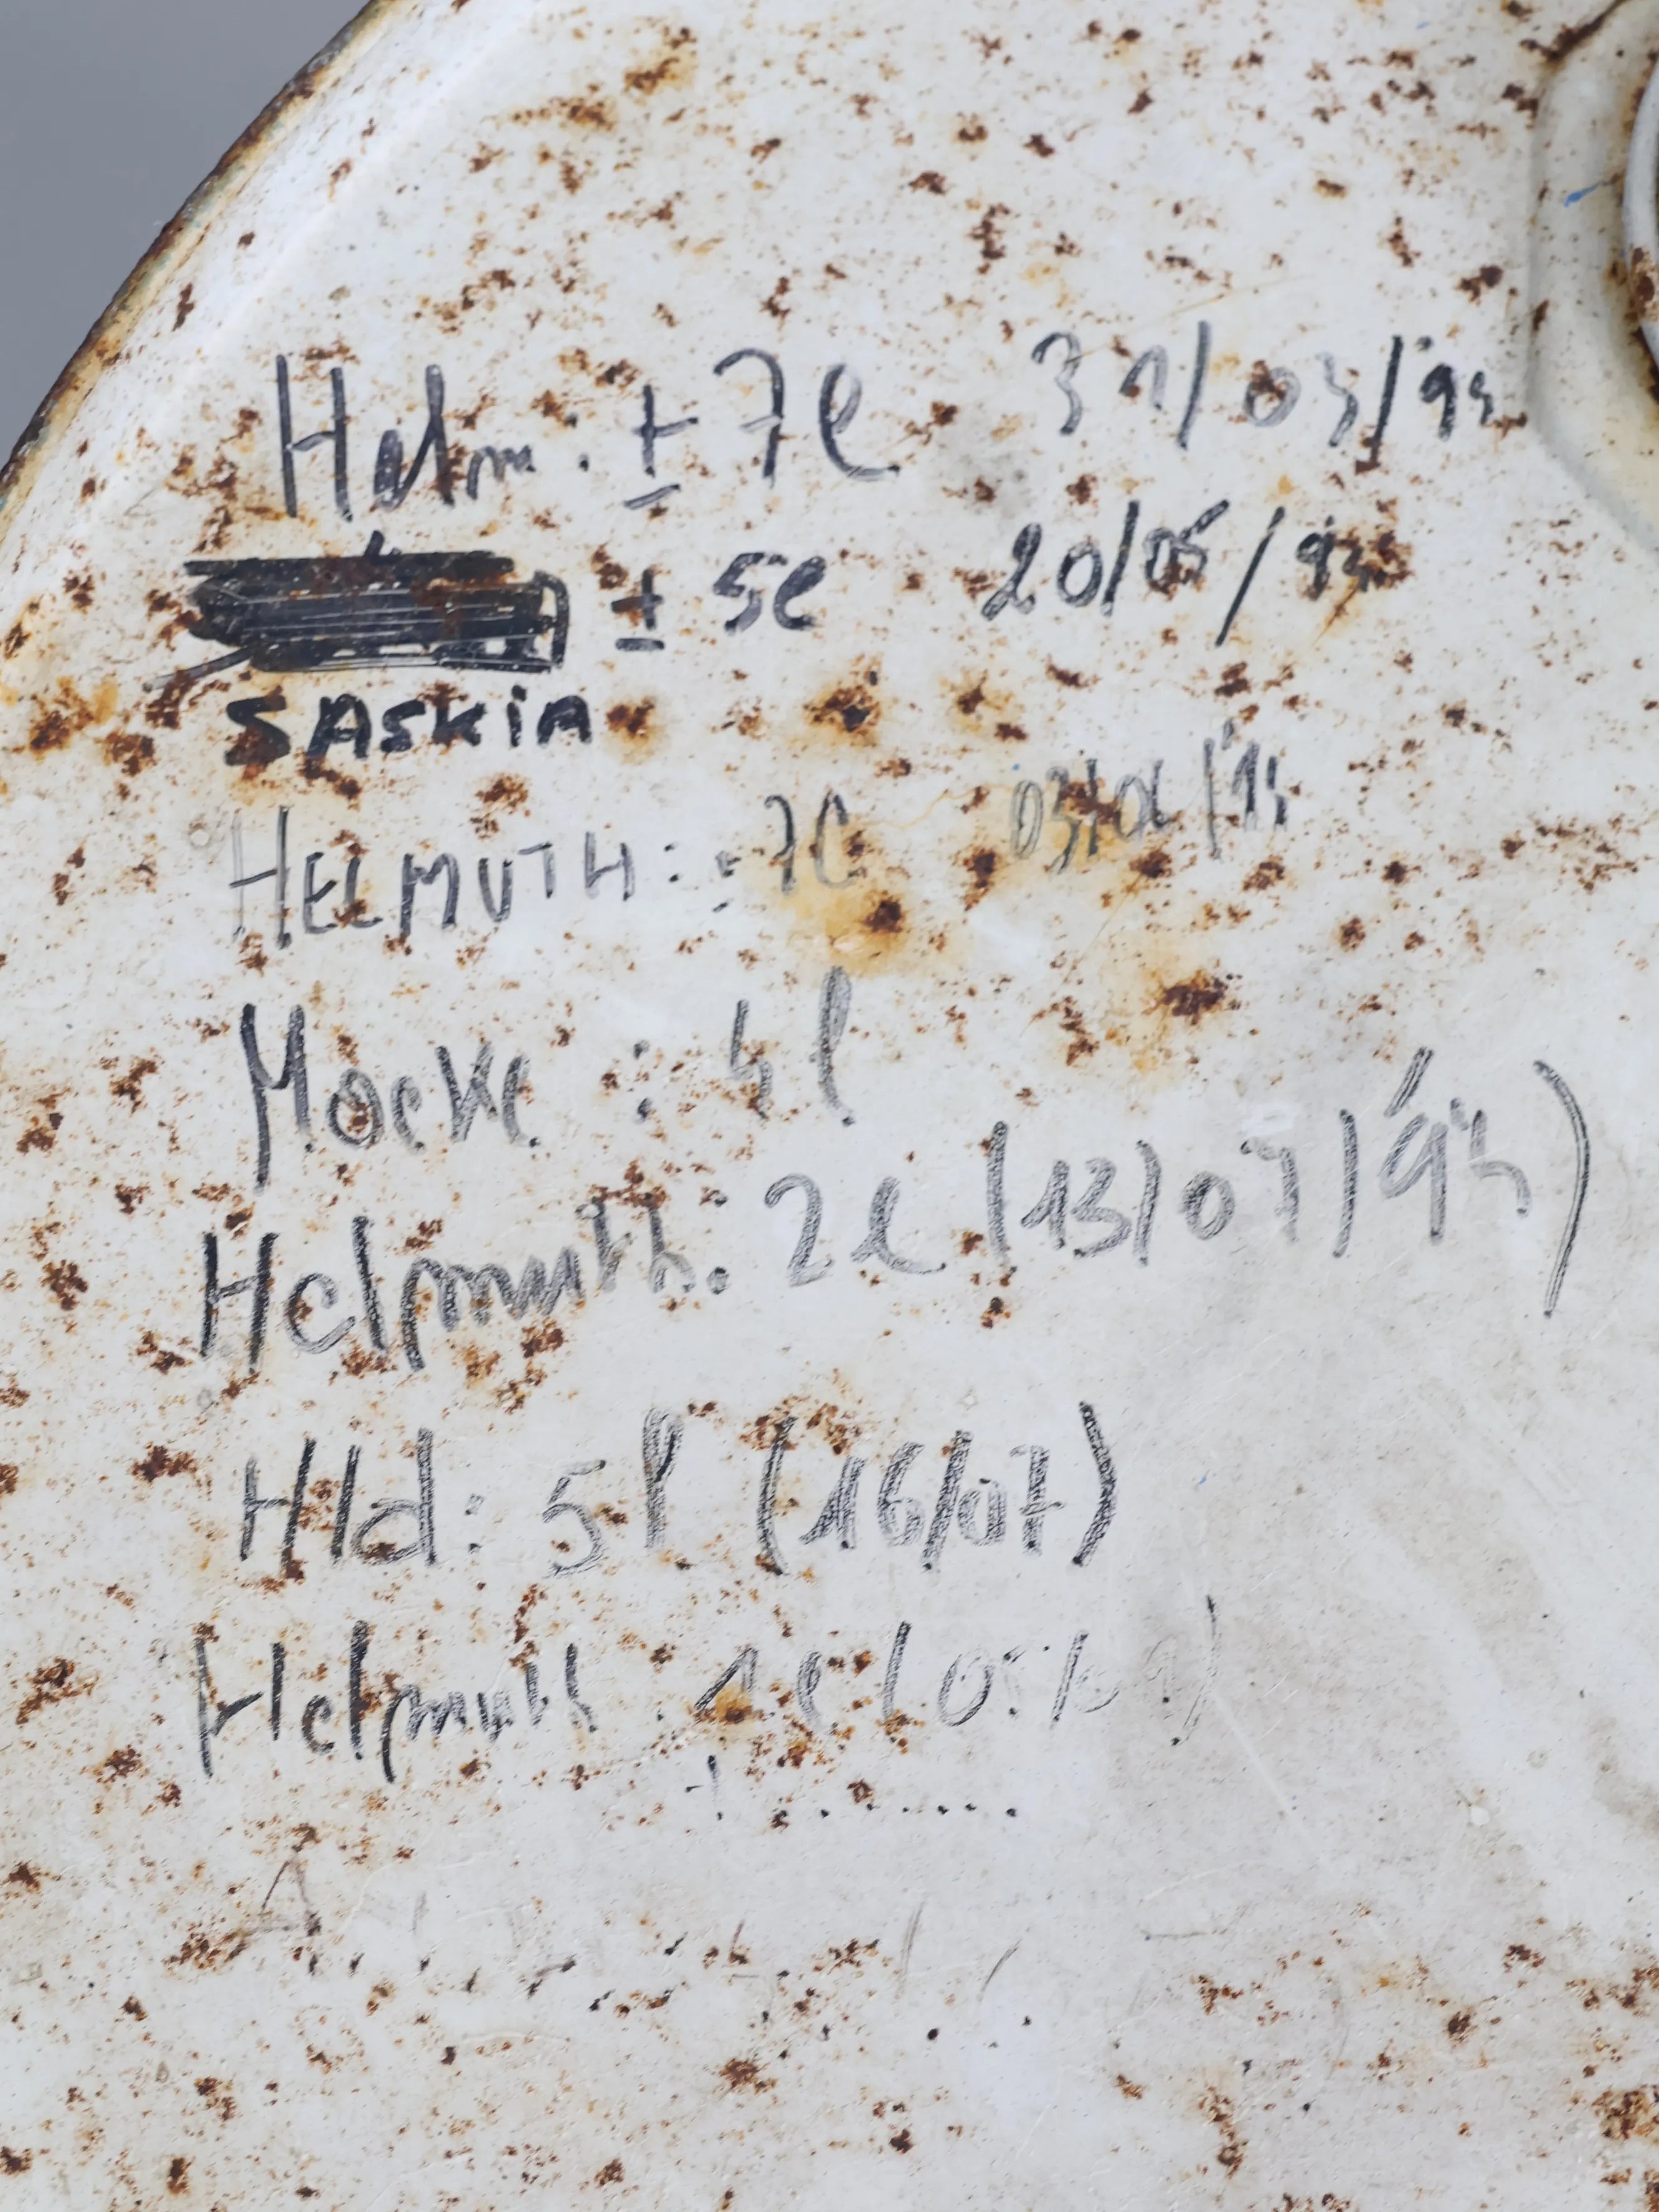 Helm: ± 7l 31/03/'94
± 5l 20/05/'94
SASKiA
HELMUTH: 7l
Macke : 4l
Helmuth: 2l (13/07/'94)
Hld: 5l (16/07)
Helmuth 1l